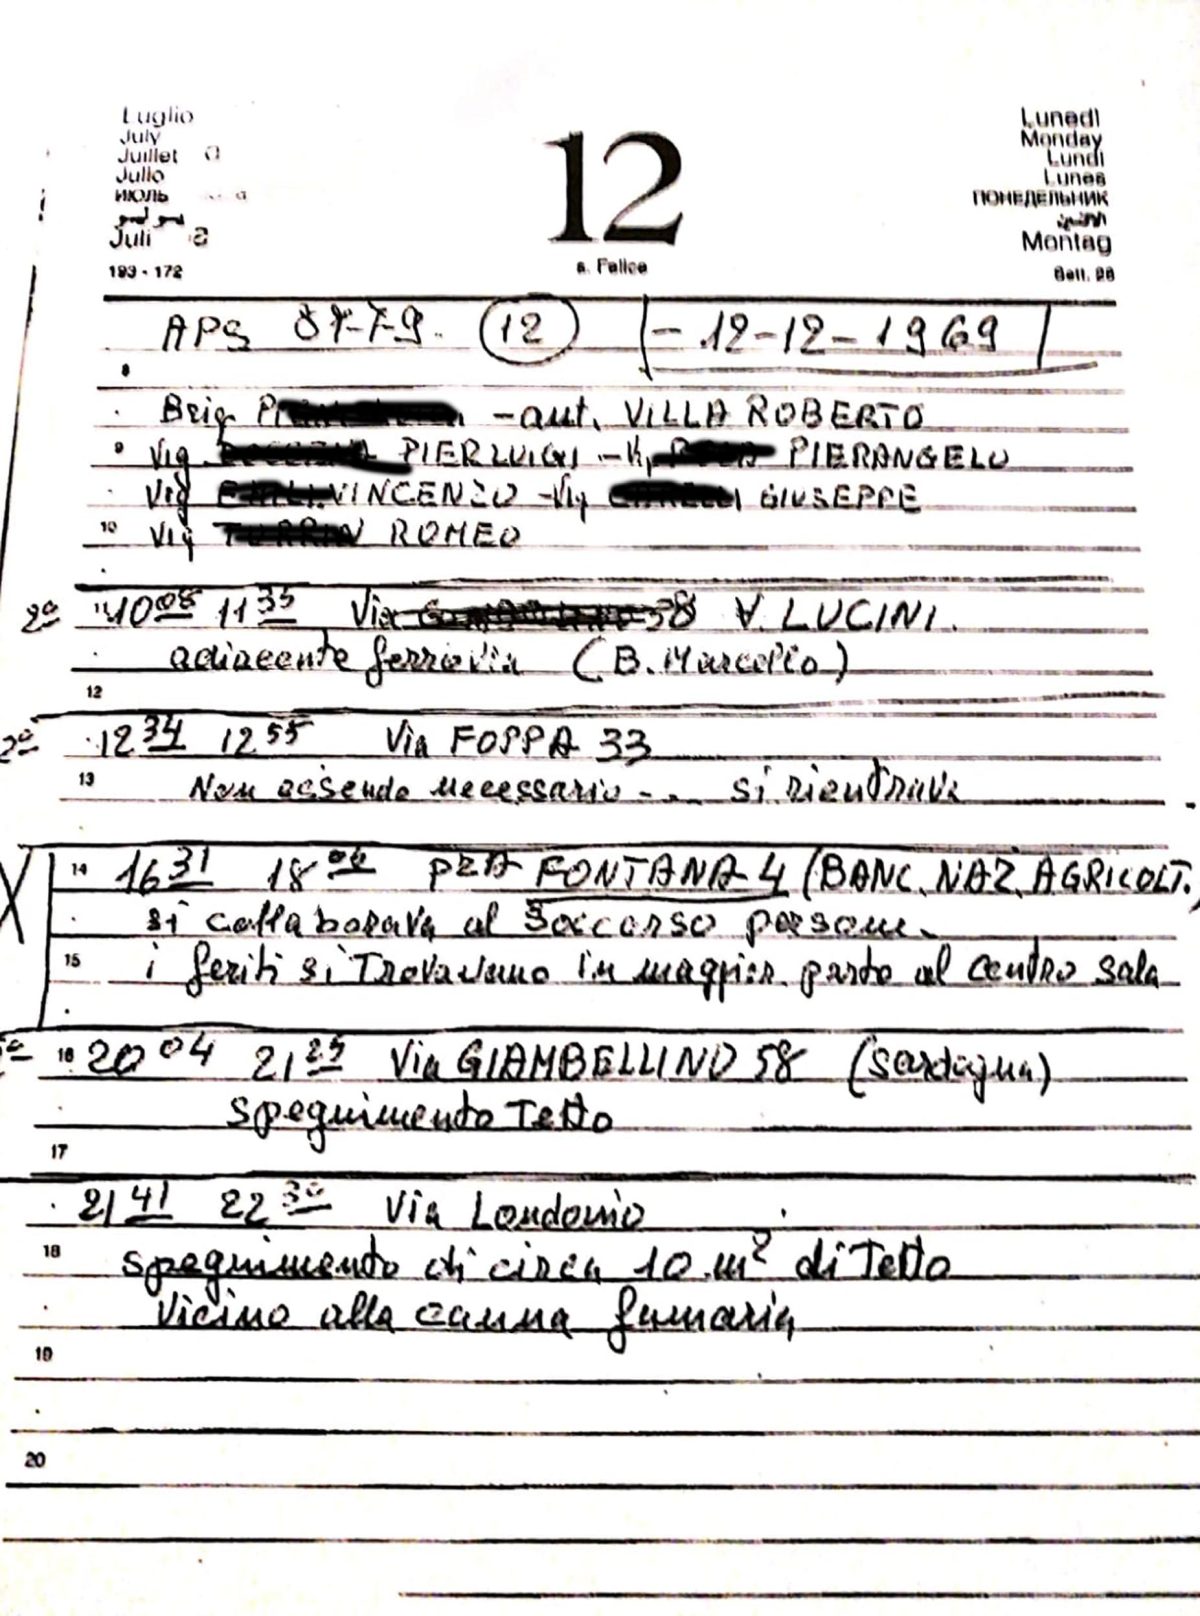 Luglio
July
Juillet
Julio
ИЮЛЬ
يوليو
Juli
193 - 172
12
s. Felice
Lunedì
Monday
Lundi
Lunes
ПОНЕДЕЛЬНИК
الاثنين
Montag
Sett. 28
APS 12 - 12-12-1969
8
Brig - aut. VILLA ROBERTO
9 Vig PIERLUIGI - Vig PIERANGELO
Vig VINCENZO - Vig GIUSEPPE
10 Vig ROMEO
2ª 11 10 08 11 35 Via 38 V. LUCINI.
adiacente ferrovia (B. Marcello)
12
2ª 12 34 12 55 Via FOPPA 33
13 Non essendo necessario - .. si rientrava
14 16 31 18 PZA FONTANA 4 (BANC. NAZ. AGRICOLT.)
si collaborava al Soccorso persone.
15 i feriti si Trovavano in maggior. parte al centro sala
16 20 04 21 25 Via GIAMBELLINO 58 (Sardegna)
spegnimento Tetto
17
21 41 22 30 Via Londonio
18 spegnimento di circa 10 m² di Tetto
Vicino alla canna fumaria
19
20